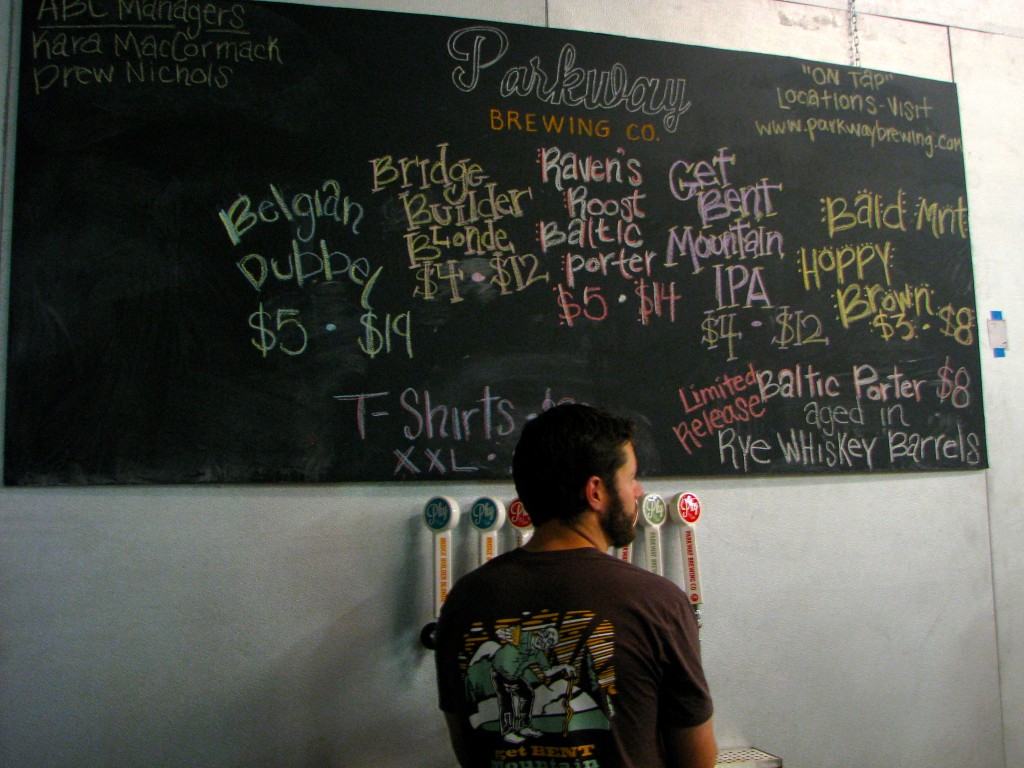 ABC Managers
Kara MacCormack
Drew Nichols
Parkway
BREWING CO.
"ON TAP"
Locations-Visit
www.parkwaybrewing.com
Belgian
Dubbel
$5 · $19
Bridge
Builder
Blonde
$4 · $12
Raven's
Roost
Baltic
Porter
$5 · $14
Get
Bent
Mountain
IPA
$4 · $12
Bald Mnt
Hoppy
Brown
$3 · $8
T-Shirts
XXL
Limited
Release
Baltic Porter $8
aged in
Rye Whiskey Barrels
Pky
Pky
Pky
Pky
Pky
PARKWAY BREWING CO
get BENT
mountain